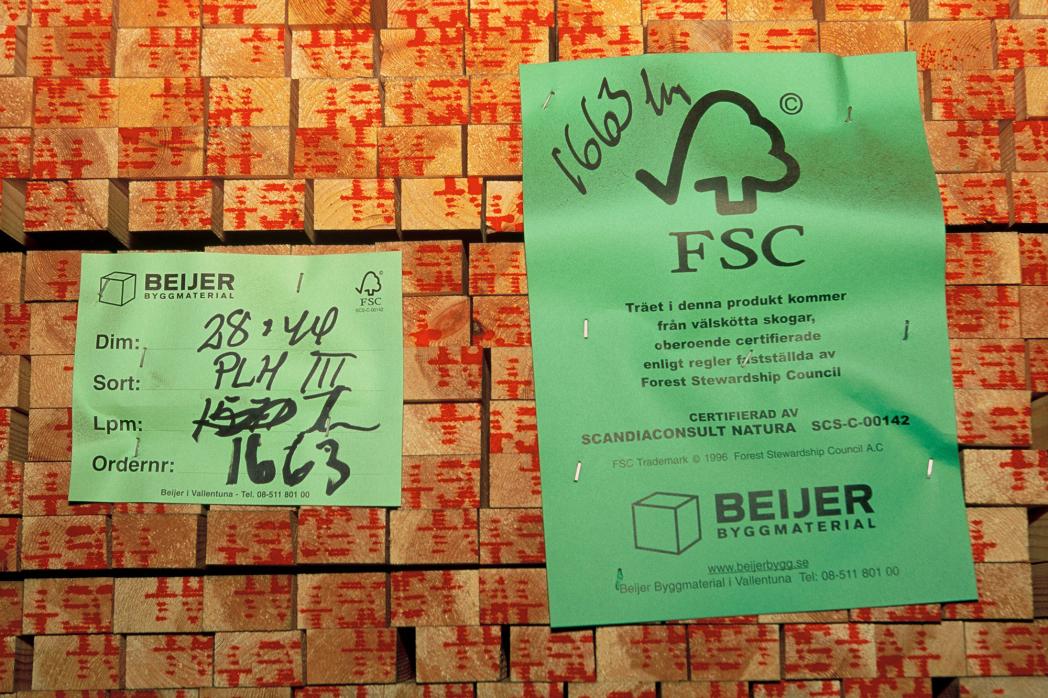 BEIJER
BYGGMATERIAL
FSC
SCS-C-00142
Dim: 28 × 44
Sort: PLH III
Lpm:
Ordernr: 1663
Beijer i Vallentuna - Tel. 08-511 801 00
1663 lm
©
FSC
Träet i denna produkt kommer
från välskötta skogar,
oberoende certifierade
enligt regler fastställda av
Forest Stewardship Council
CERTIFIERAD AV
SCANDIACONSULT NATURA SCS-C-00142
FSC Trademark © 1996 Forest Stewardship Council A.C
BEIJER
BYGGMATERIAL
www.beijerbygg.se
Beijer Byggmaterial i Vallentuna Tel: 08-511 801 00